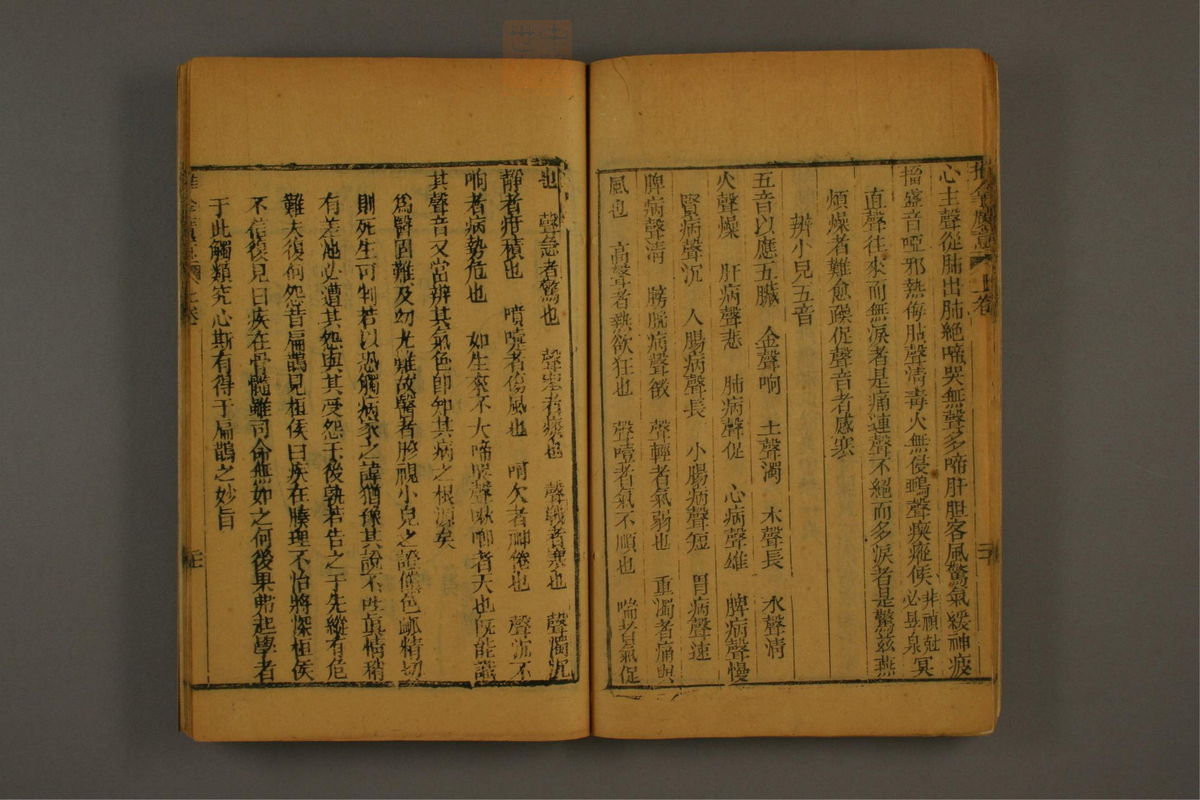 心主聲從肺出肺絕啼哭無聲多啼肝胆客風驚氣緩神疲
聲音啞邪熱侮肺聲清毒火無侵鴉聲瘓癡候非禎尅冥必昜泉
直聲往來而無淚者是痛連聲不絕而多淚者是驚玆燕
煩燥者難愈躁促聲音者感寒
辨小兒五音
五音以應五臟　金聲响　土聲濁　木聲長　水聲清
火聲燥　肝病聲悲　肺病聲促　心病聲雄　脾病聲慢
腎病聲沉　大腸病聲長　小腸病聲短　胃病聲速
脾病聲清　膀胱病聲微　聲輕者氣弱也　重濁者痛與
風也　高聲者熱欲狂也　聲噎者氣不順也　喘者氣促
也　聲急者驚也　聲塞者痰也　聲戰者寒也　聲濁沉
靜者疳積也　噴嚏者傷風也　呵欠者神倦也　聲沉不
响者病勢危也　如生來不大啼哭聲啾唧者夭也既能識
其聲音又當辨其氣色卽知其病之根源矣
爲醫固難及幼尤難故醫者胗視小兒之證僅色脈精切
則死生可判若以恐觸病家之諱猶豫其說不吐眞情稍
有差池必遭其怨與其受怨于後孰若告之于先縱有危
難夫復何怨昔扁鵲見桓侯曰疾在腠理不怡將深桓侯
不信復見曰疾在骨髓雖司命無如之何後果弗起學者
于此觸類究心斯有得于扁鵲之妙旨